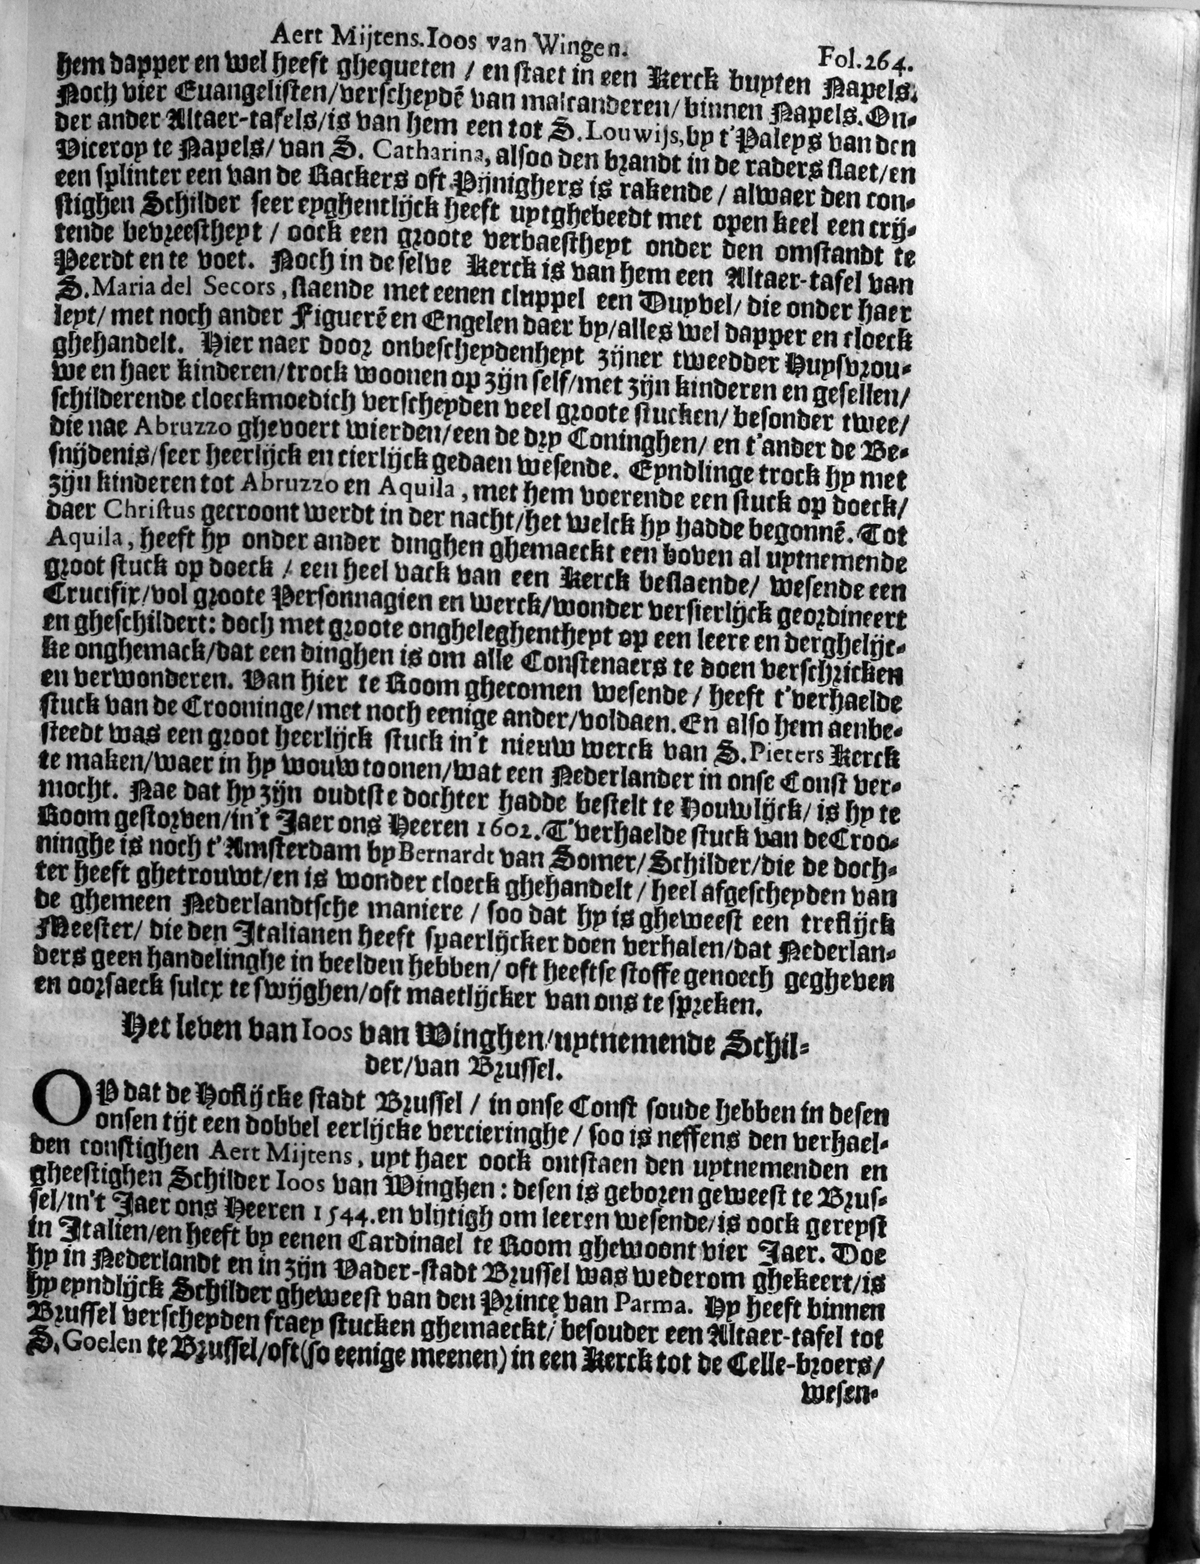 Aert Mijtens. Ioos van Wingen.
Fol. 264.
hem dapper en wel heeft ghequeten / en staet in een Kerck buyten Napels.
Noch vier Euangelisten/verscheydē van malcanderen/binnen Napels. On-
der ander Altaer-tafels/is van hem een tot S. Louwijs, by t'Paleys van den
Viceroy te Napels/ van S. Catharina, alsoo den brandt in de raders slaet/en
een splinter een van de Rackers oft Pijnighers is rakende / alwaer den con-
stighen Schilder seer eyghentlijck heeft uytghebeedt met open keel een crij-
tende bevreestheyt / oock een groote verbaestheyt onder den omstandt te
Peerdt en te voet. Noch in de selve Kerck is van hem een Altaer-tafel van
S. Maria del Secors, slaende met eenen cluppel een Duyvel/ die onder haer
leyt/ met noch ander Figuerē en Engelen daer by/alles wel dapper en cloeck
ghehandelt. Hier naer door onbescheydenheyt zijner tweedder Huysvrou-
we en haer kinderen/trock woonen op zijn self/met zijn kinderen en gesellen/
schilderende cloeckmoedich verscheyden veel groote stucken/ besonder twee/
die nae Abruzzo ghevoert wierden/een de dry Coninghen/ en t'ander de Be-
snijdenis/seer heerlijck en cierlijck gedaen wesende. Eyndlinge trock hy met
zijn kinderen tot Abruzzo en Aquila, met hem voerende een stuck op doeck/
daer Christus gecroont werdt in der nacht/het welck hy hadde begonnē. Tot
Aquila, heeft hy onder ander dinghen ghemaeckt een boven al uytnemende
groot stuck op doeck / een heel vack van een Kerck beslaende/ wesende een
Crucifix/vol groote Personnagien en werck/wonder versierlijck geordineert
en gheschildert: doch met groote ongheleghentheyt op een leere en derghelijc-
ke onghemack/dat een dinghen is om alle Constenaers te doen verschricken
en verwonderen. Van hier te Room ghecomen wesende / heeft t'verhaelde
stuck van de Crooninge/met noch eenige ander/voldaen. En also hem aenbe-
steedt was een groot heerlijck stuck in't nieuw werck van S. Pieters Kerck
te maken/waer in hy wouw toonen/wat een Nederlander in onse Const ver-
mocht. Nae dat hy zijn oudtste dochter hadde bestelt te Houwlijck/ is hy te
Room gestorven/in't Jaer ons Heeren 1602. T'verhaelde stuck van de Croo-
ninghe is noch t'Amsterdam by Bernardt van Somer/Schilder/die de doch-
ter heeft ghetrouwt/en is wonder cloeck ghehandelt / heel afgescheyden van
de ghemeen Nederlandtsche maniere / soo dat hy is gheweest een treflijck
Meester/ die den Italianen heeft spaerlijcker doen verhalen/dat Nederlan-
ders geen handelinghe in beelden hebben/ oft heeftse stoffe genoech gegheven
en oorsaeck sulcx te swijghen/oft maetlijcker van ons te spreken.
Het leven van Ioos van Winghen/uytnemende Schil-
der/van Brussel.
OP dat de Hoflijcke stadt Brussel / in onse Const soude hebben in desen
onsen tijt een dobbel eerlijcke vercieringhe / soo is neffens den verhael-
den constighen Aert Mijtens, uyt haer oock ontstaen den uytnemenden en
gheestighen Schilder Ioos van Winghen: desen is geboren geweest te Brus-
sel/in't Jaer ons Heeren 1544. en vlijtigh om leeren wesende/is oock gereyst
in Italien/en heeft by eenen Cardinael te Room ghewoont vier Jaer. Doe
hy in Nederlandt en in zijn Vader-stadt Brussel was wederom ghekeert/is
hy eyndlijck Schilder gheweest van den Prince van Parma. Hy heeft binnen
Brussel verscheyden fraey stucken ghemaeckt/ besonder een Altaer-tafel tot
S. Goelen te Brussel/oft (so eenige meenen) in een Kerck tot de Celle-broers/
wesen-